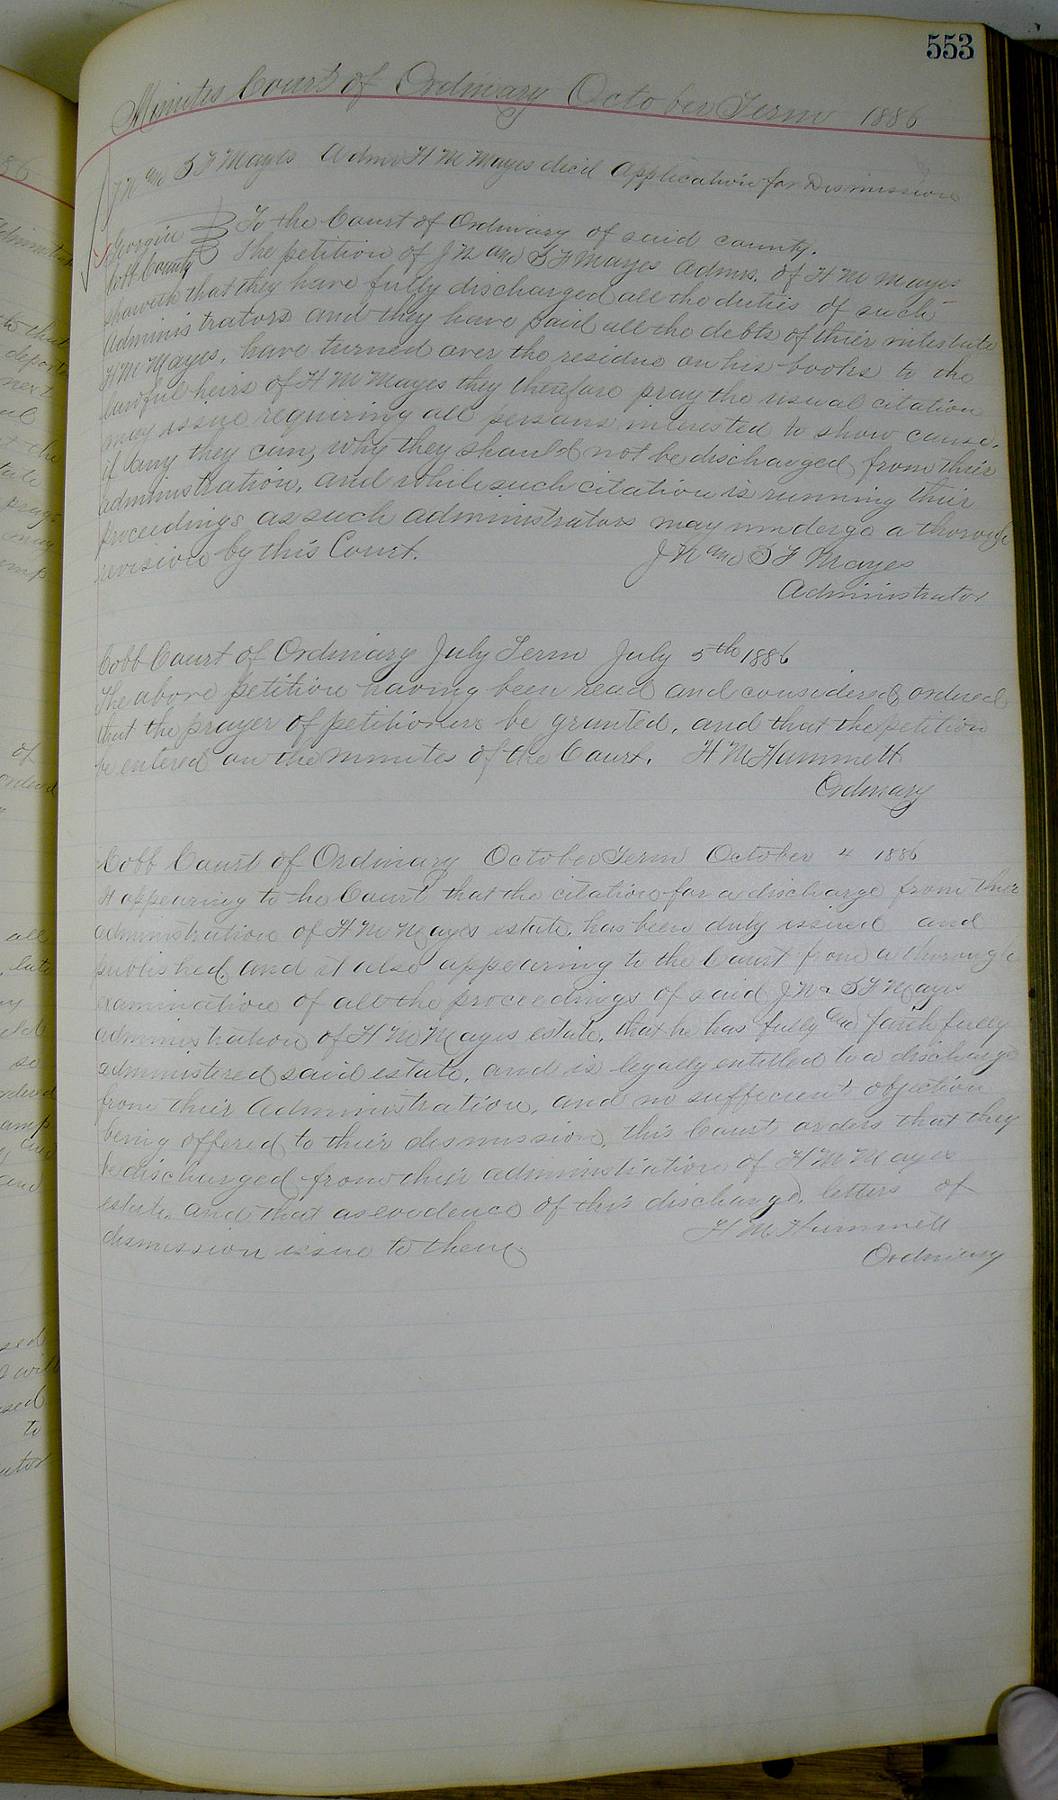 553
Minutes Court of Ordinary October Term 1886
J N and S F Mayes Admr H M Mayes dec'd Application for Dismission
Georgia } To the Court of Ordinary of said county.
Cobb County } The petition of J N and S F Mayes Admrs. of H M Mayes
showeth that they have fully discharged all the duties of such
administrators and they have paid all the debts of their intestate
H M Mayes, have turned over the residue on his books to the
lawful heirs of H M Mayes they therefore pray the usual citation
may issue requiring all persons interested to show cause,
if any they can, why they should not be discharged from their
administration, and while such citation is running their
proceedings as such administrators may undergo a thorough
revision by this Court. J N and S F Mayes
Administrator
Cobb Court of Ordinary July Term July 5th 1886
The above petition having been read and considered, ordered
that the prayer of petitioners be granted, and that the petition
be entered on the minutes of the Court. H M Hammett
Ordinary
Cobb Court of Ordinary October Term October 4 1886
It appearing to he Court that the citation for a discharge from their
administration of H M Mayes estate, has been duly issued and
published, and it also appearing to the Court from a thorough
examination of all the proceedings of said J N & S F Mayes
administration of H M Mayes estate, that he has fully and faithfully
administered said estate, and is legally entitled to a discharge
from their administration, and no sufficient objection
being offered to their dismission, this Court orders that they
be discharged from their administration of H M Mayes
estate, and that as evidence of this discharge, letters of
dismission issue to them. H M Hammett
Ordinary